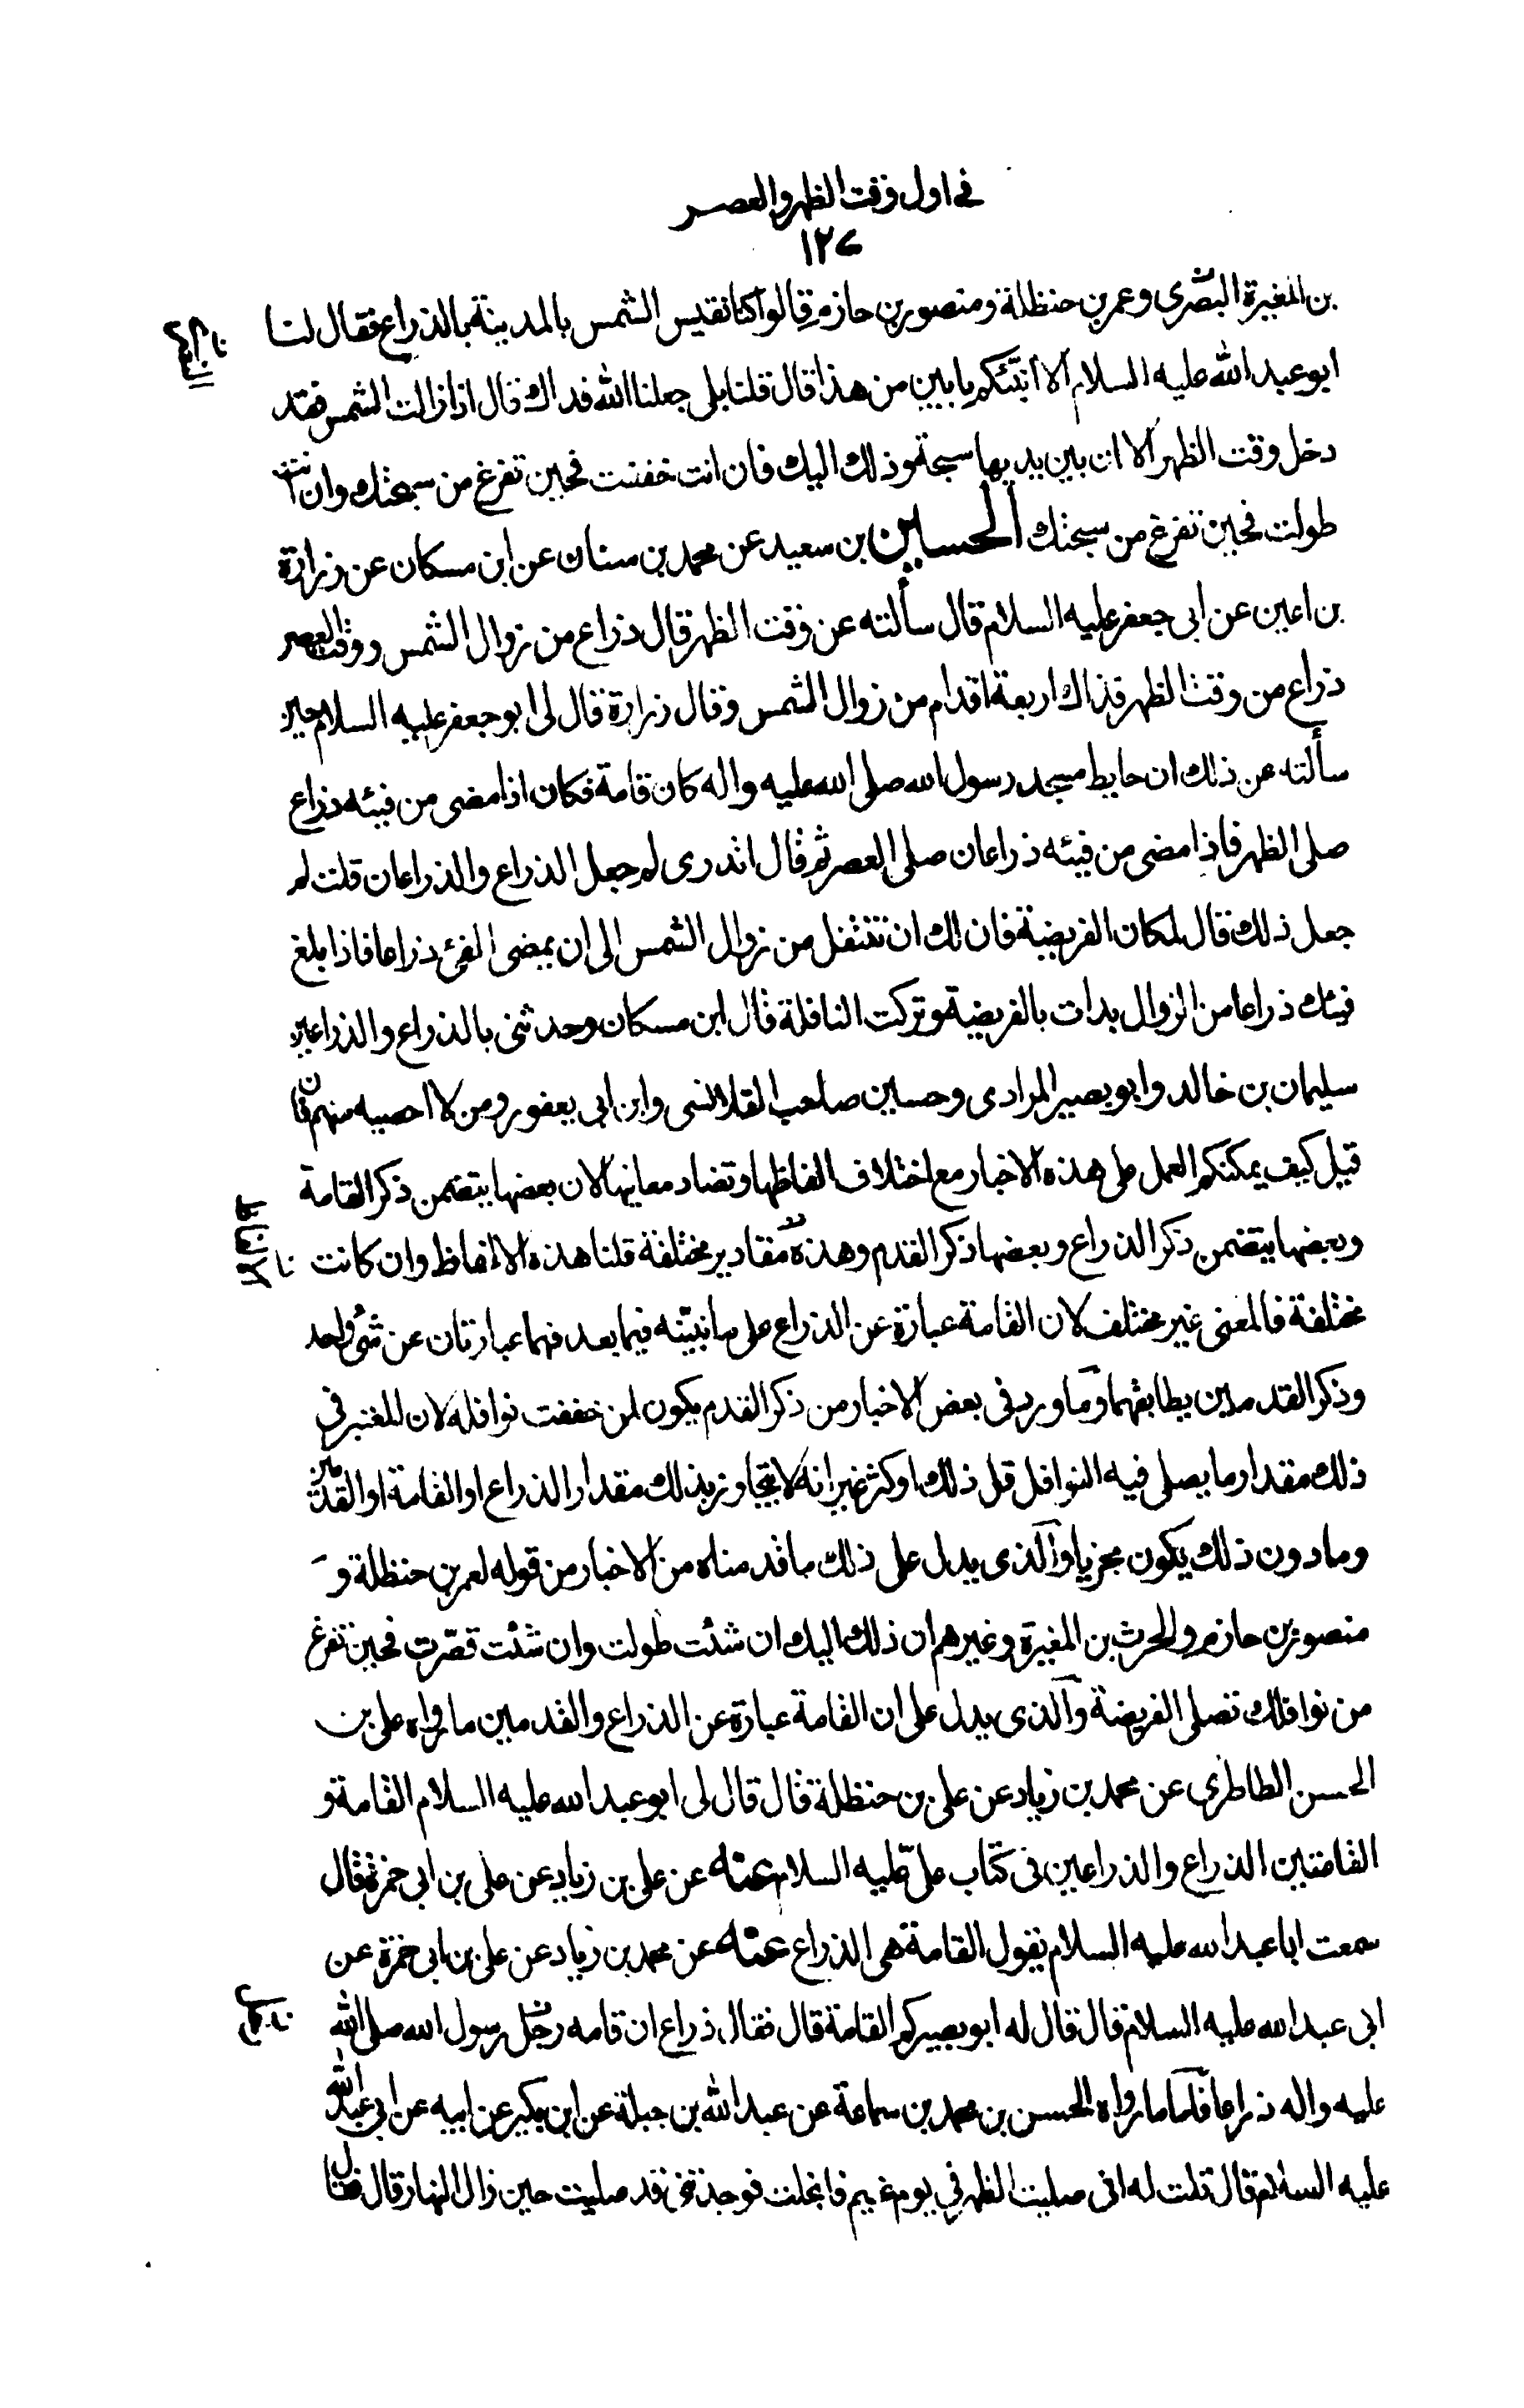 في اول وقت الظهر والعصر
١٢٧
بن المغيرة النصرى وعمر بن حنظلة ومنصور بن حازم قالوا كنا نقيس الشمس بالمدينة بالذراع فقال لنا
ابو عبد الله عليه السلام الا انبّئكم بابين من هذا قال قلنا بلى جعلنا الله فداك قال اذا زالت الشمس فقد
دخل وقت الظهر الا ان بين يديها سبحة وذلك اليك فان انت خففت فحين تفرغ من سبحتك وان انت
طولت فحين تفرغ من سبحتك الحسين بن سعيد عن محمد بن سنان عن ابن مسكان عن زرارة
بن اعين عن ابى جعفر عليه السلام قال سألته عن وقت الظهر قال ذراع من زوال الشمس ووقت العصر
ذراع من وقت الظهر فذاك اربعة اقدام من زوال الشمس وقال زرارة قال لى ابو جعفر عليه السلام حين
سألته عن ذلك ان حايط مسجد رسول الله صلى الله عليه واله كان قامة فكان اذا مضى من فيئه ذراع
صلى الظهر فاذا مضى من فيئه ذراعان صلى العصر ثم قال اتدرى لم جعل الذراع والذراعان قلت لم
جعل ذلك قال لمكان الفريضة فان لك ان تتنفل من زوال الشمس الى ان يمضى الفئ ذراعا فاذا بلغ
فيئك ذراعا من الزوال بدات بالفريضة وتركت النافلة قال ابن مسكان وحدثنى بالذراع والذراعين
سليمان بن خالد وابو بصير المرادى وحسين صاحب القلانسى وابن ابى يعفور ومن لا احصيه منهم فان
قيل كيف يمكنكم العمل على هذه الاخبار مع اختلاف الفاظها وتضاد معانيها لان بعضها يتضمن ذكر القامة
وبعضها يتضمن ذكر الذراع وبعضها ذكر القدم وهذه مقادير مختلفة قلنا هذه الالفاظ وان كانت
مختلفة فالمعنى غير مختلف لان القامة عبارة عن الذراع على ما نبيّنه فيما بعد فهما عبارتان عن شئ واحد
وذكر القدمين يطابقهما وما ورد فى بعض الاخبار من ذكر القدم يكون لمن خففت نوافله لان المعتبر فى
ذلك مقدار ما يصلى فيه النوافل قل ذلك او كثر غير انه لا يتجاوز بذلك مقدار الذراع او القامة او القدمين
وما دون ذلك يكون مجزيا والّذى يدل على ذلك ما قدمناه من الاخبار من قوله لعمر بن حنظلة و
منصور بن حازم والحرث بن المغيرة وغيرهم ان ذلك اليك ان شئت طولت وان شئت قصّرت فحين تفرغ
من نوافلك تصلى الفريضة والّذى يدل على ان القامة عبارة عن الذراع والقدمين ما رواه على بن
الحسن الطاطرى عن محمد بن زياد عن على بن حنظلة قال قال لى ابو عبد الله عليه السلام القامة و
القامتين الذراع والذراعين فى كتاب علىّ عليه السلام عنه عن على بن زياد عن على بن ابى حمزة قال
سمعت ابا عبد الله عليه السلام يقول القامة هى الذراع عنه عن محمد بن زياد عن على بن ابى حمزة عن
ابى عبد الله عليه السلام قال قال له ابو بصير كم القامة قال فقال ذراع ان قامه رحل رسول الله صلى الله
عليه واله ذراعا فامّا ما رواه الحسن بن محمد بن سماعة عن عبد الله بن جبلة عن ابن بكير عن ابيه عن ابى عبد الله
عليه السلام قال قلت له انى صليت الظهر في يوم غيم فانجلت فوجدتنى قد صليت حين زال النهار قال فقال